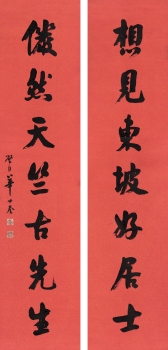 想見東坡好居士
儼然天竺古先生
華世奎